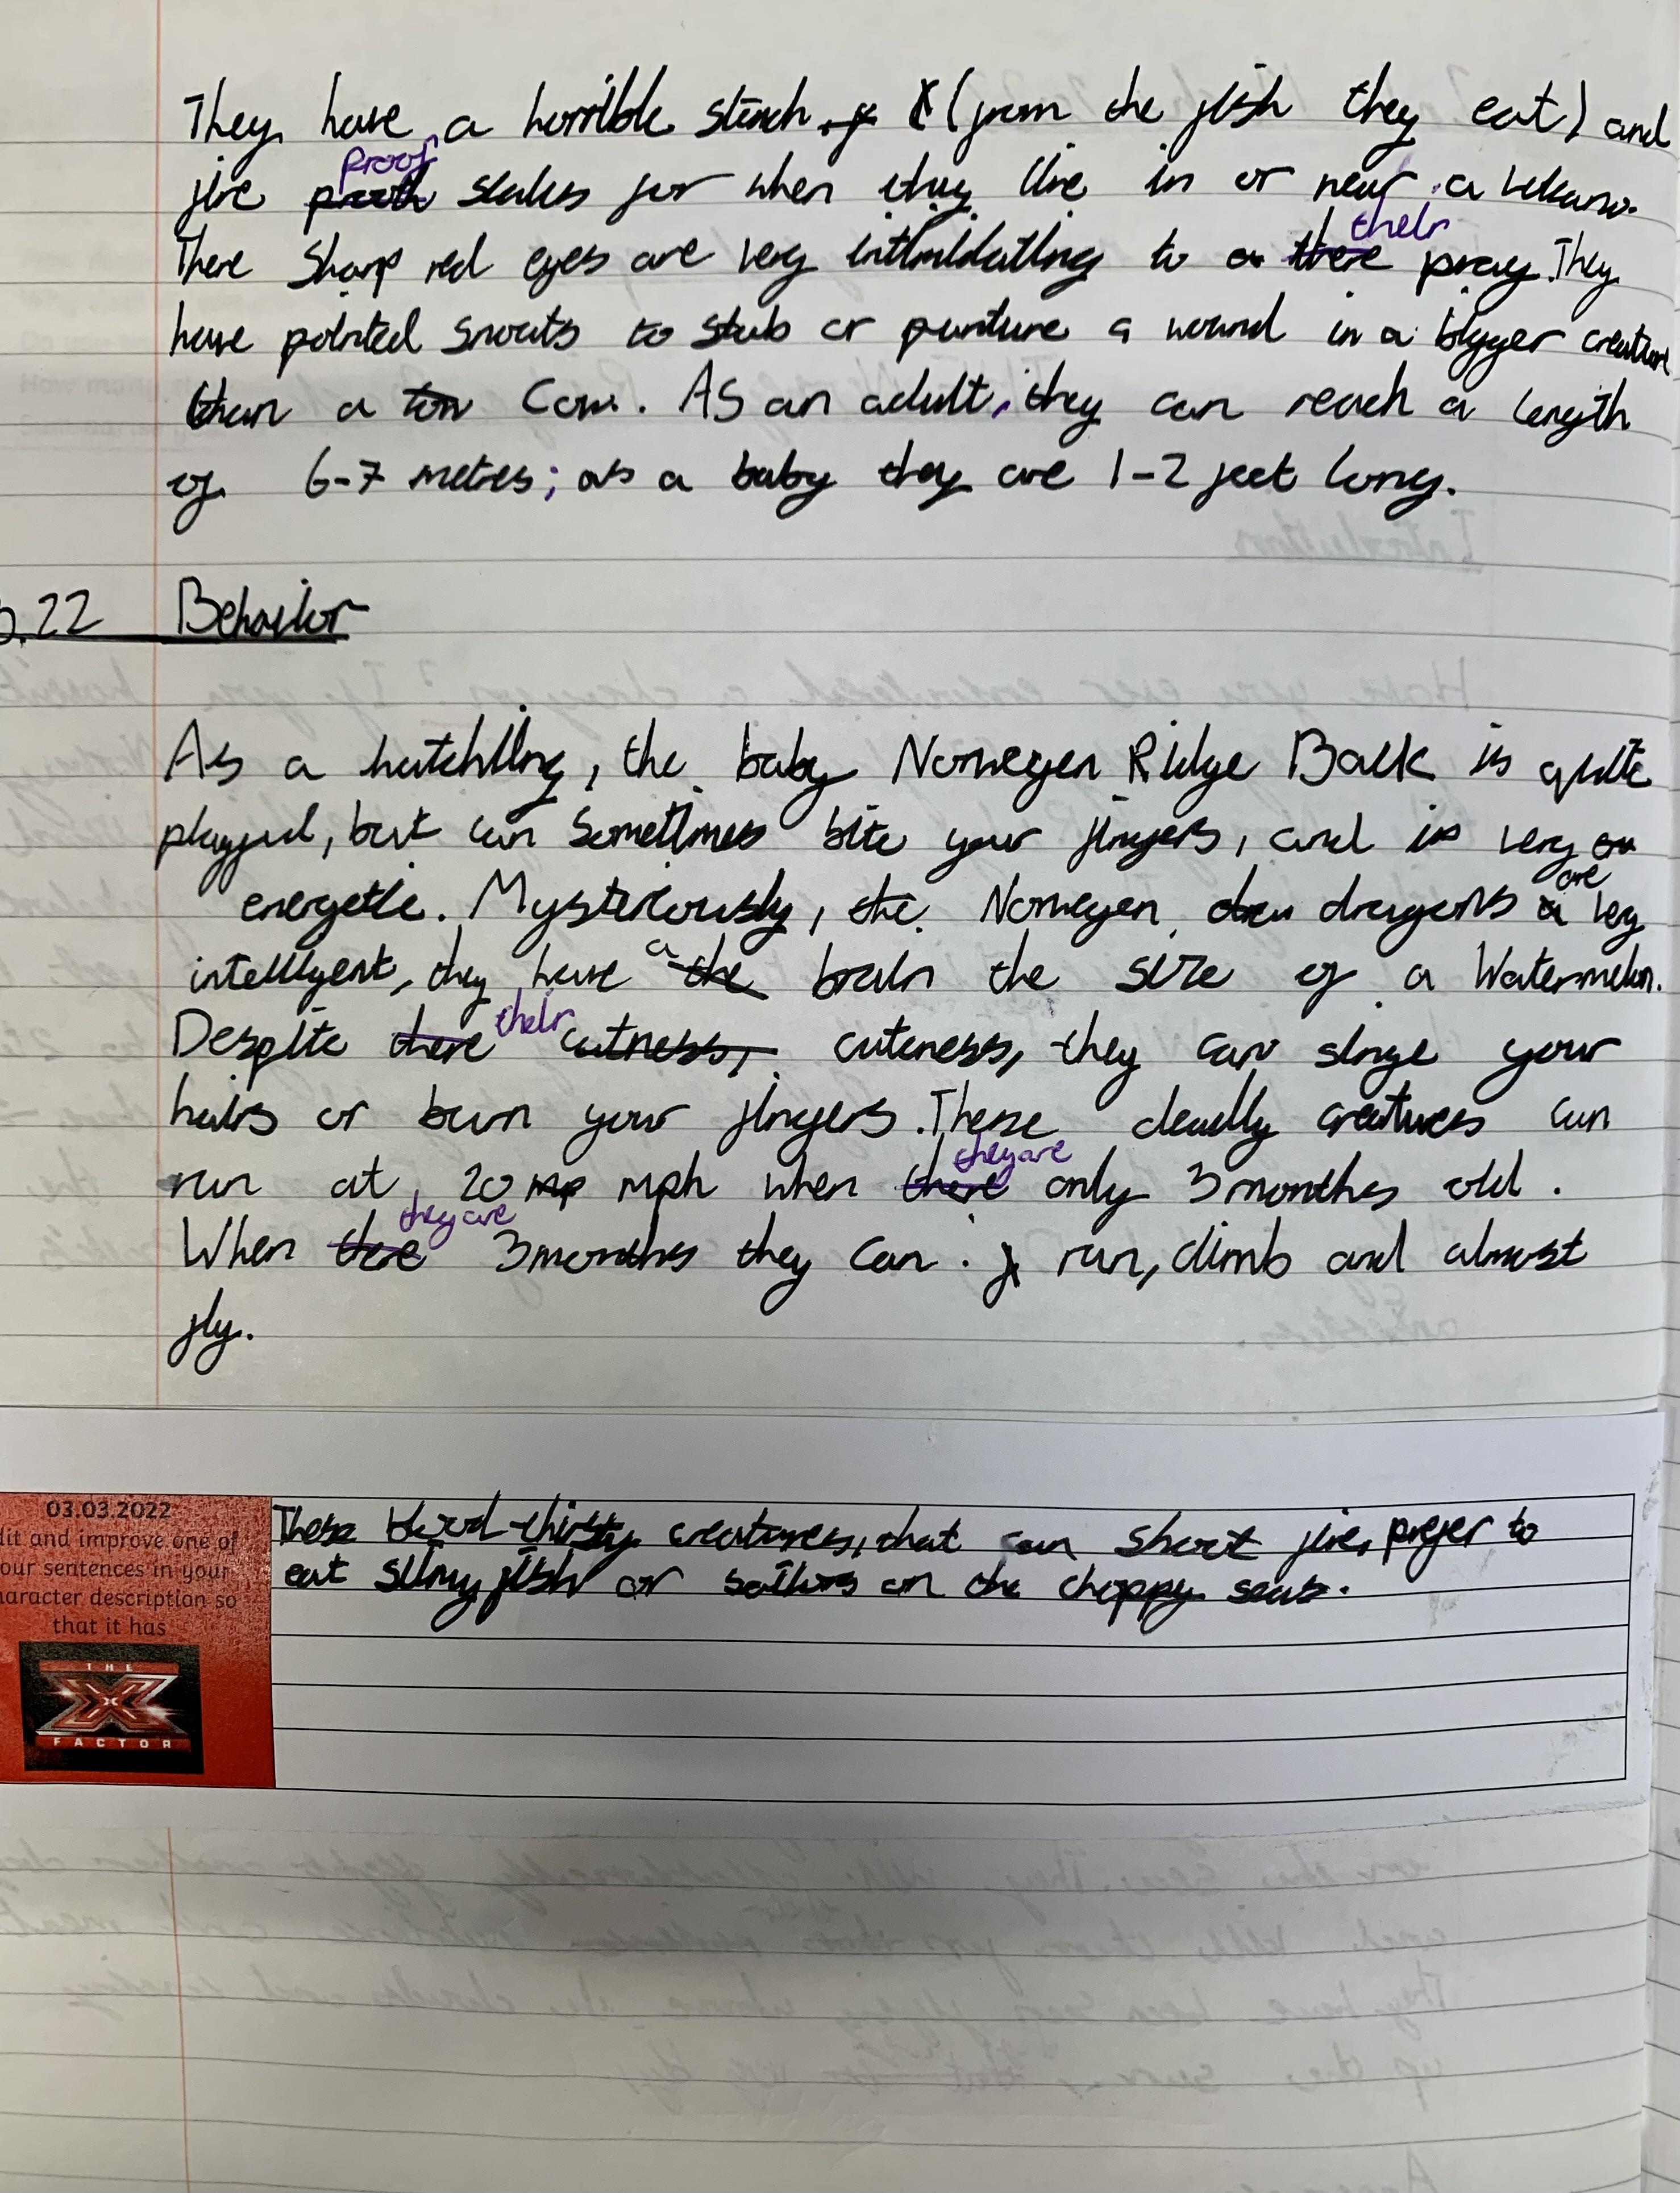 They have a horrible stench (from the fish they eat) and
fire proof scales for when they live in or near a volcano.
There Sharp red eyes are very intimidating to their pray. They
have pointed snouts to stab or punture a wound in a bigger creature
than a Cow. As an adult, they can reach a length
of 6-7 metres; as a baby they are 1-2 feet long.
.22 Behavior
As a hatchling, the baby Norwegen Ridge Back is quite
playful, but can sometimes bite your fingers, and is very
energetic. Mysteriously, the Norwegen dragons are very
intelligent, they have a brain the size of a Watermelon.
Despite their cuteness, they can singe your
hairs or burn your fingers. These deadly creatures can
run at 20 mph when they are only 3 months old.
When they are 3 months they can. run, climb and almost
fly.
03.03.2022
dit and improve one of
our sentences in your
haracter description so
that it has
THE
X
FACTOR
These blood-thirsty creatures, that can shoot fire, prefer to
eat slimy fish or sailors on the choppy seas.